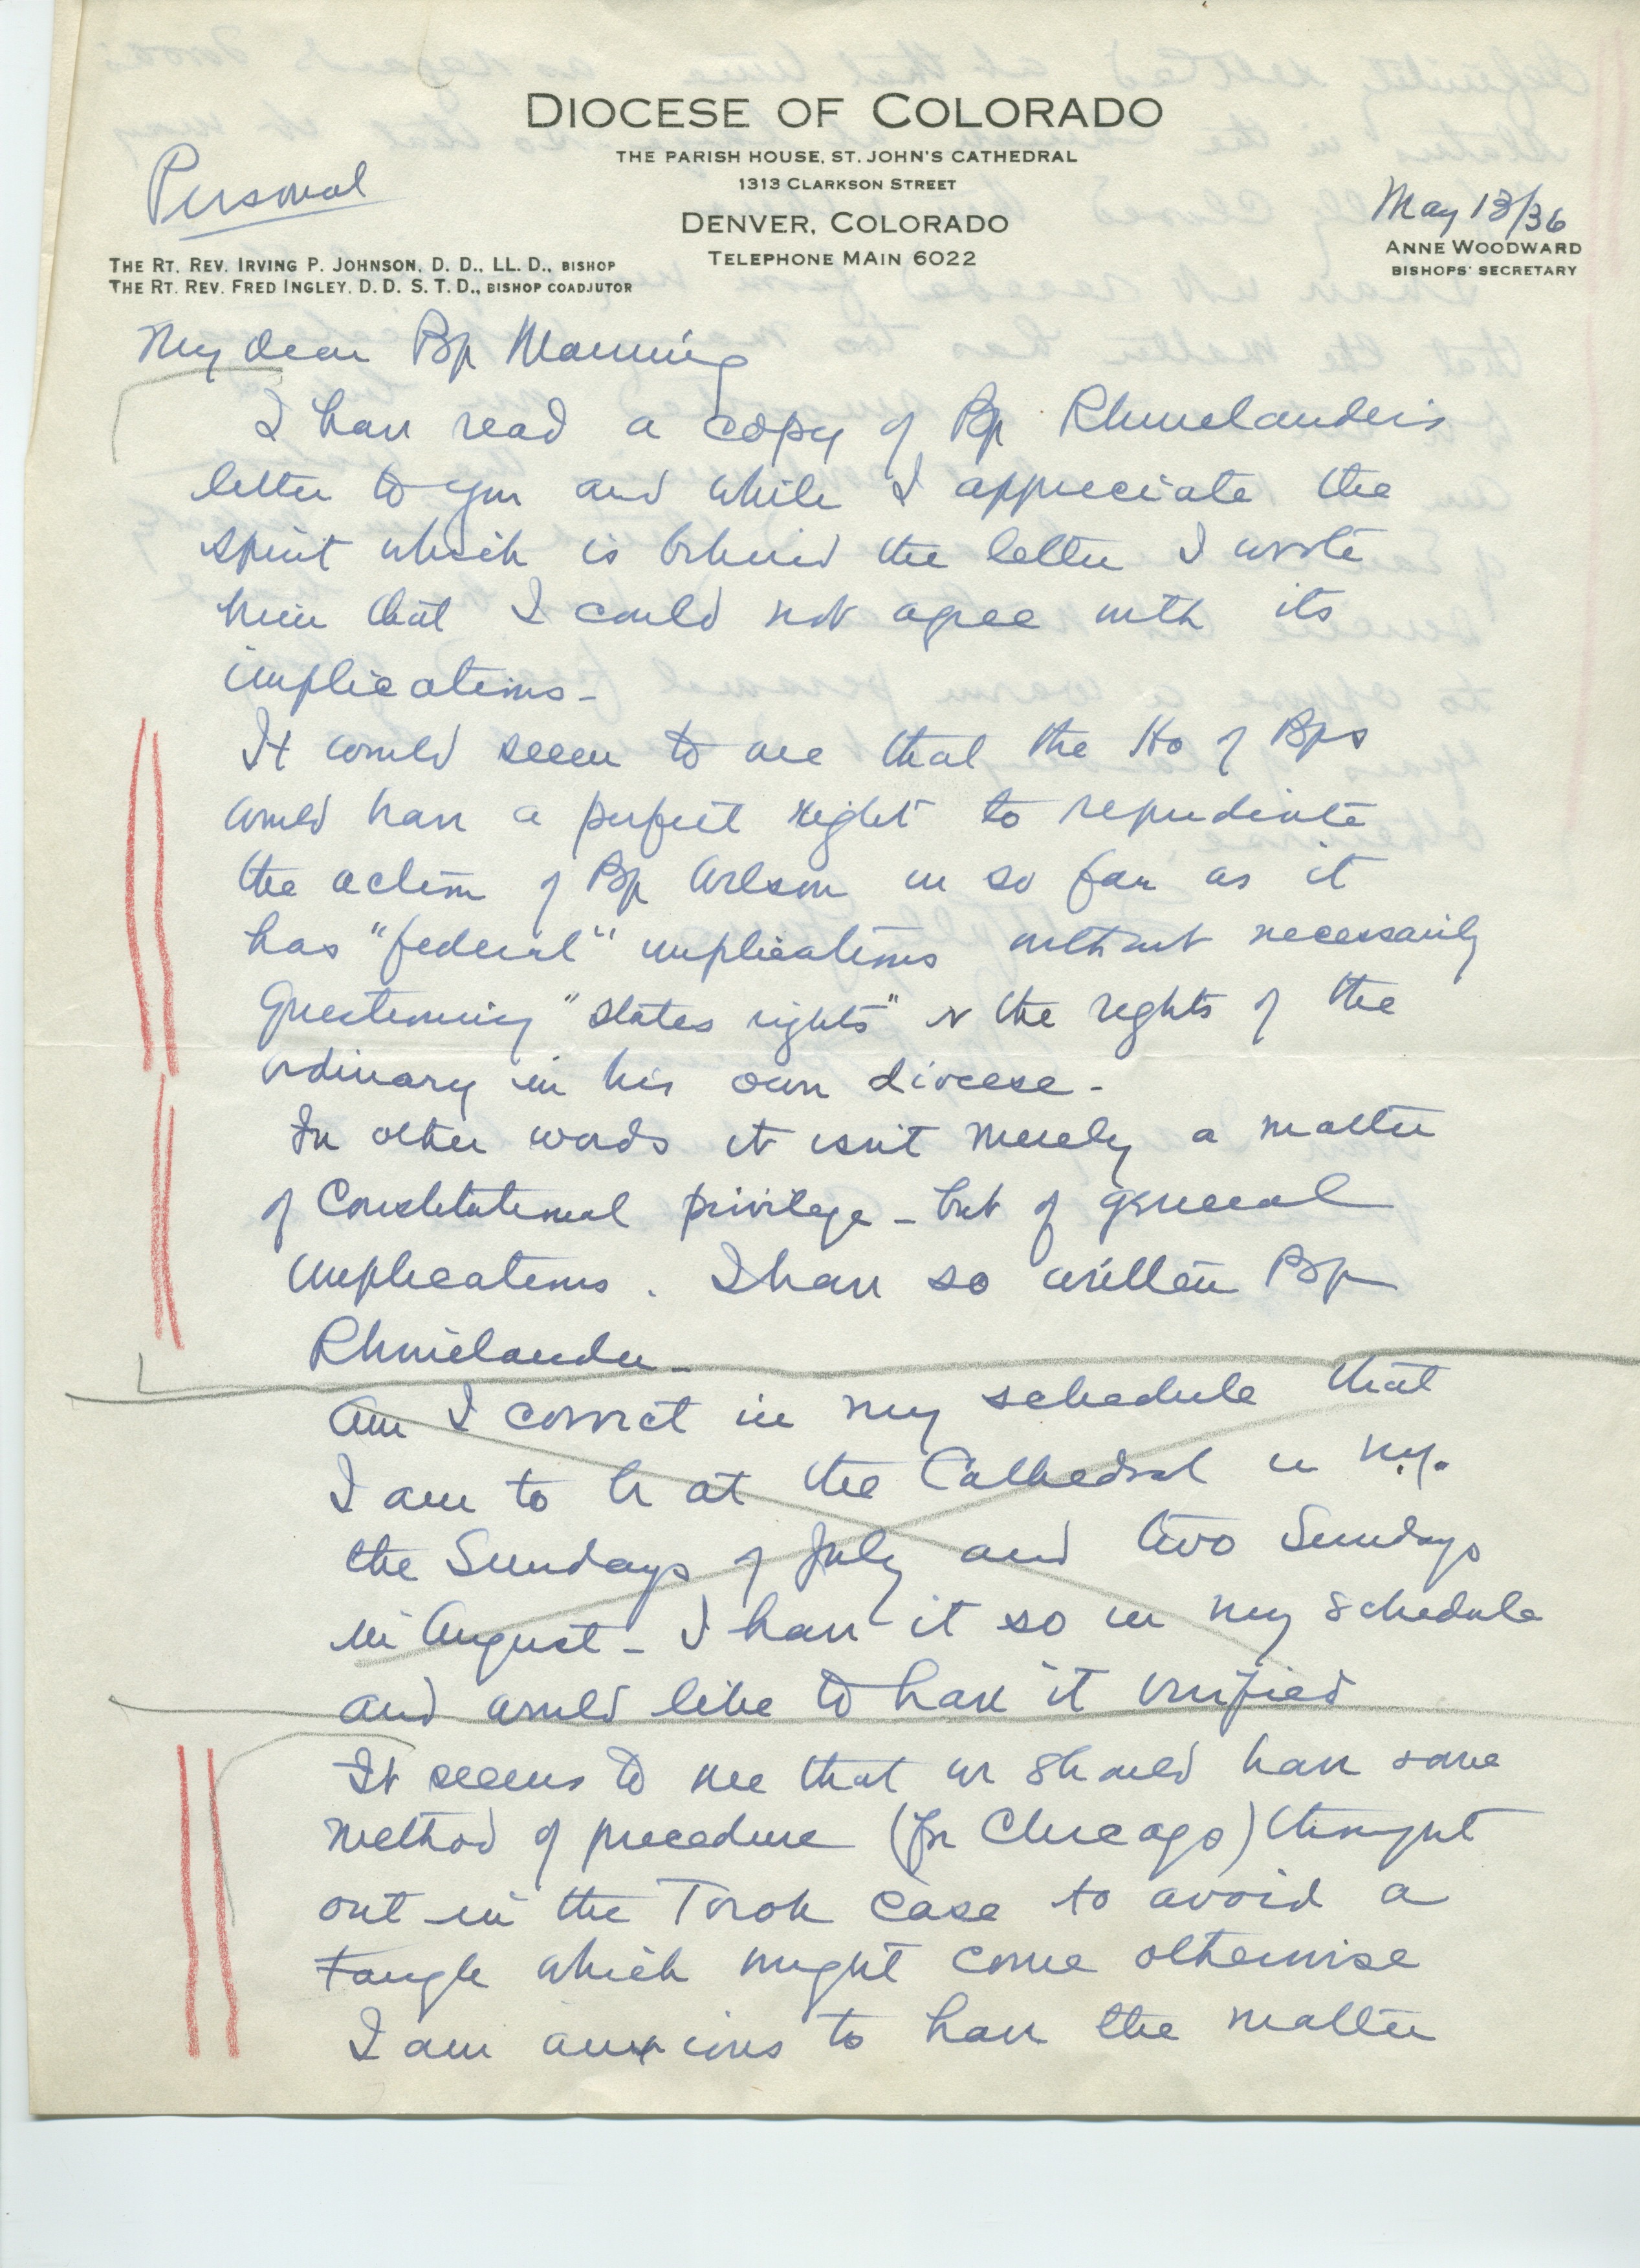 DIOCESE OF COLORADO
THE PARISH HOUSE, ST. JOHN'S CATHEDRAL
1313 CLARKSON STREET
DENVER, COLORADO
TELEPHONE MAIN 6022
Personal
May 13/36
ANNE WOODWARD
BISHOPS' SECRETARY
THE RT. REV. IRVING P. JOHNSON, D. D., LL. D., BISHOP
THE RT. REV. FRED INGLEY, D. D. S. T. D., BISHOP COADJUTOR
My dear Bp Manning
I have read a copy of Bp Rhinelander's
letter to you and while I appreciate the
spirit which is behind the letter I wrote
him that I could not agree with its
implications -
It would seem to me that the Ho of Bps
would have a perfect right to repudiate
the action of Bp Wilson in so far as it
has "federal" implications without necessarily
questioning "states rights" or the rights of the
ordinary in his own diocese -
In other words it isn't merely a matter
of Constitutional privilege - but of general
implications. I have so written Bp
Rhinelander -
Am I correct in my schedule that
I am to be at the Cathedral in N.Y.
the Sundays of July and two Sundays
in August - I have it so in my schedule
and would like to have it verified
It seems to me that we should have some
method of procedure (for Chicago) thought
out in the Torok case to avoid a
tangle which might come otherwise
I am anxious to have the matter